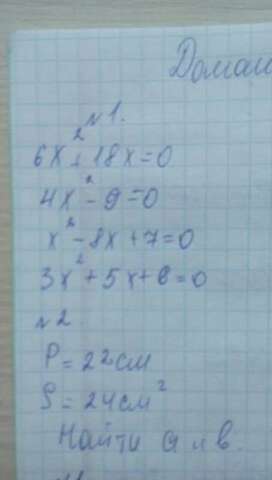 Домаш
№1.
6x²+18x=0
4x²-9=0
x²-8x+7=0
3x²+5x+6=0
№2
P=22см
S=24см²
Найти a и в.